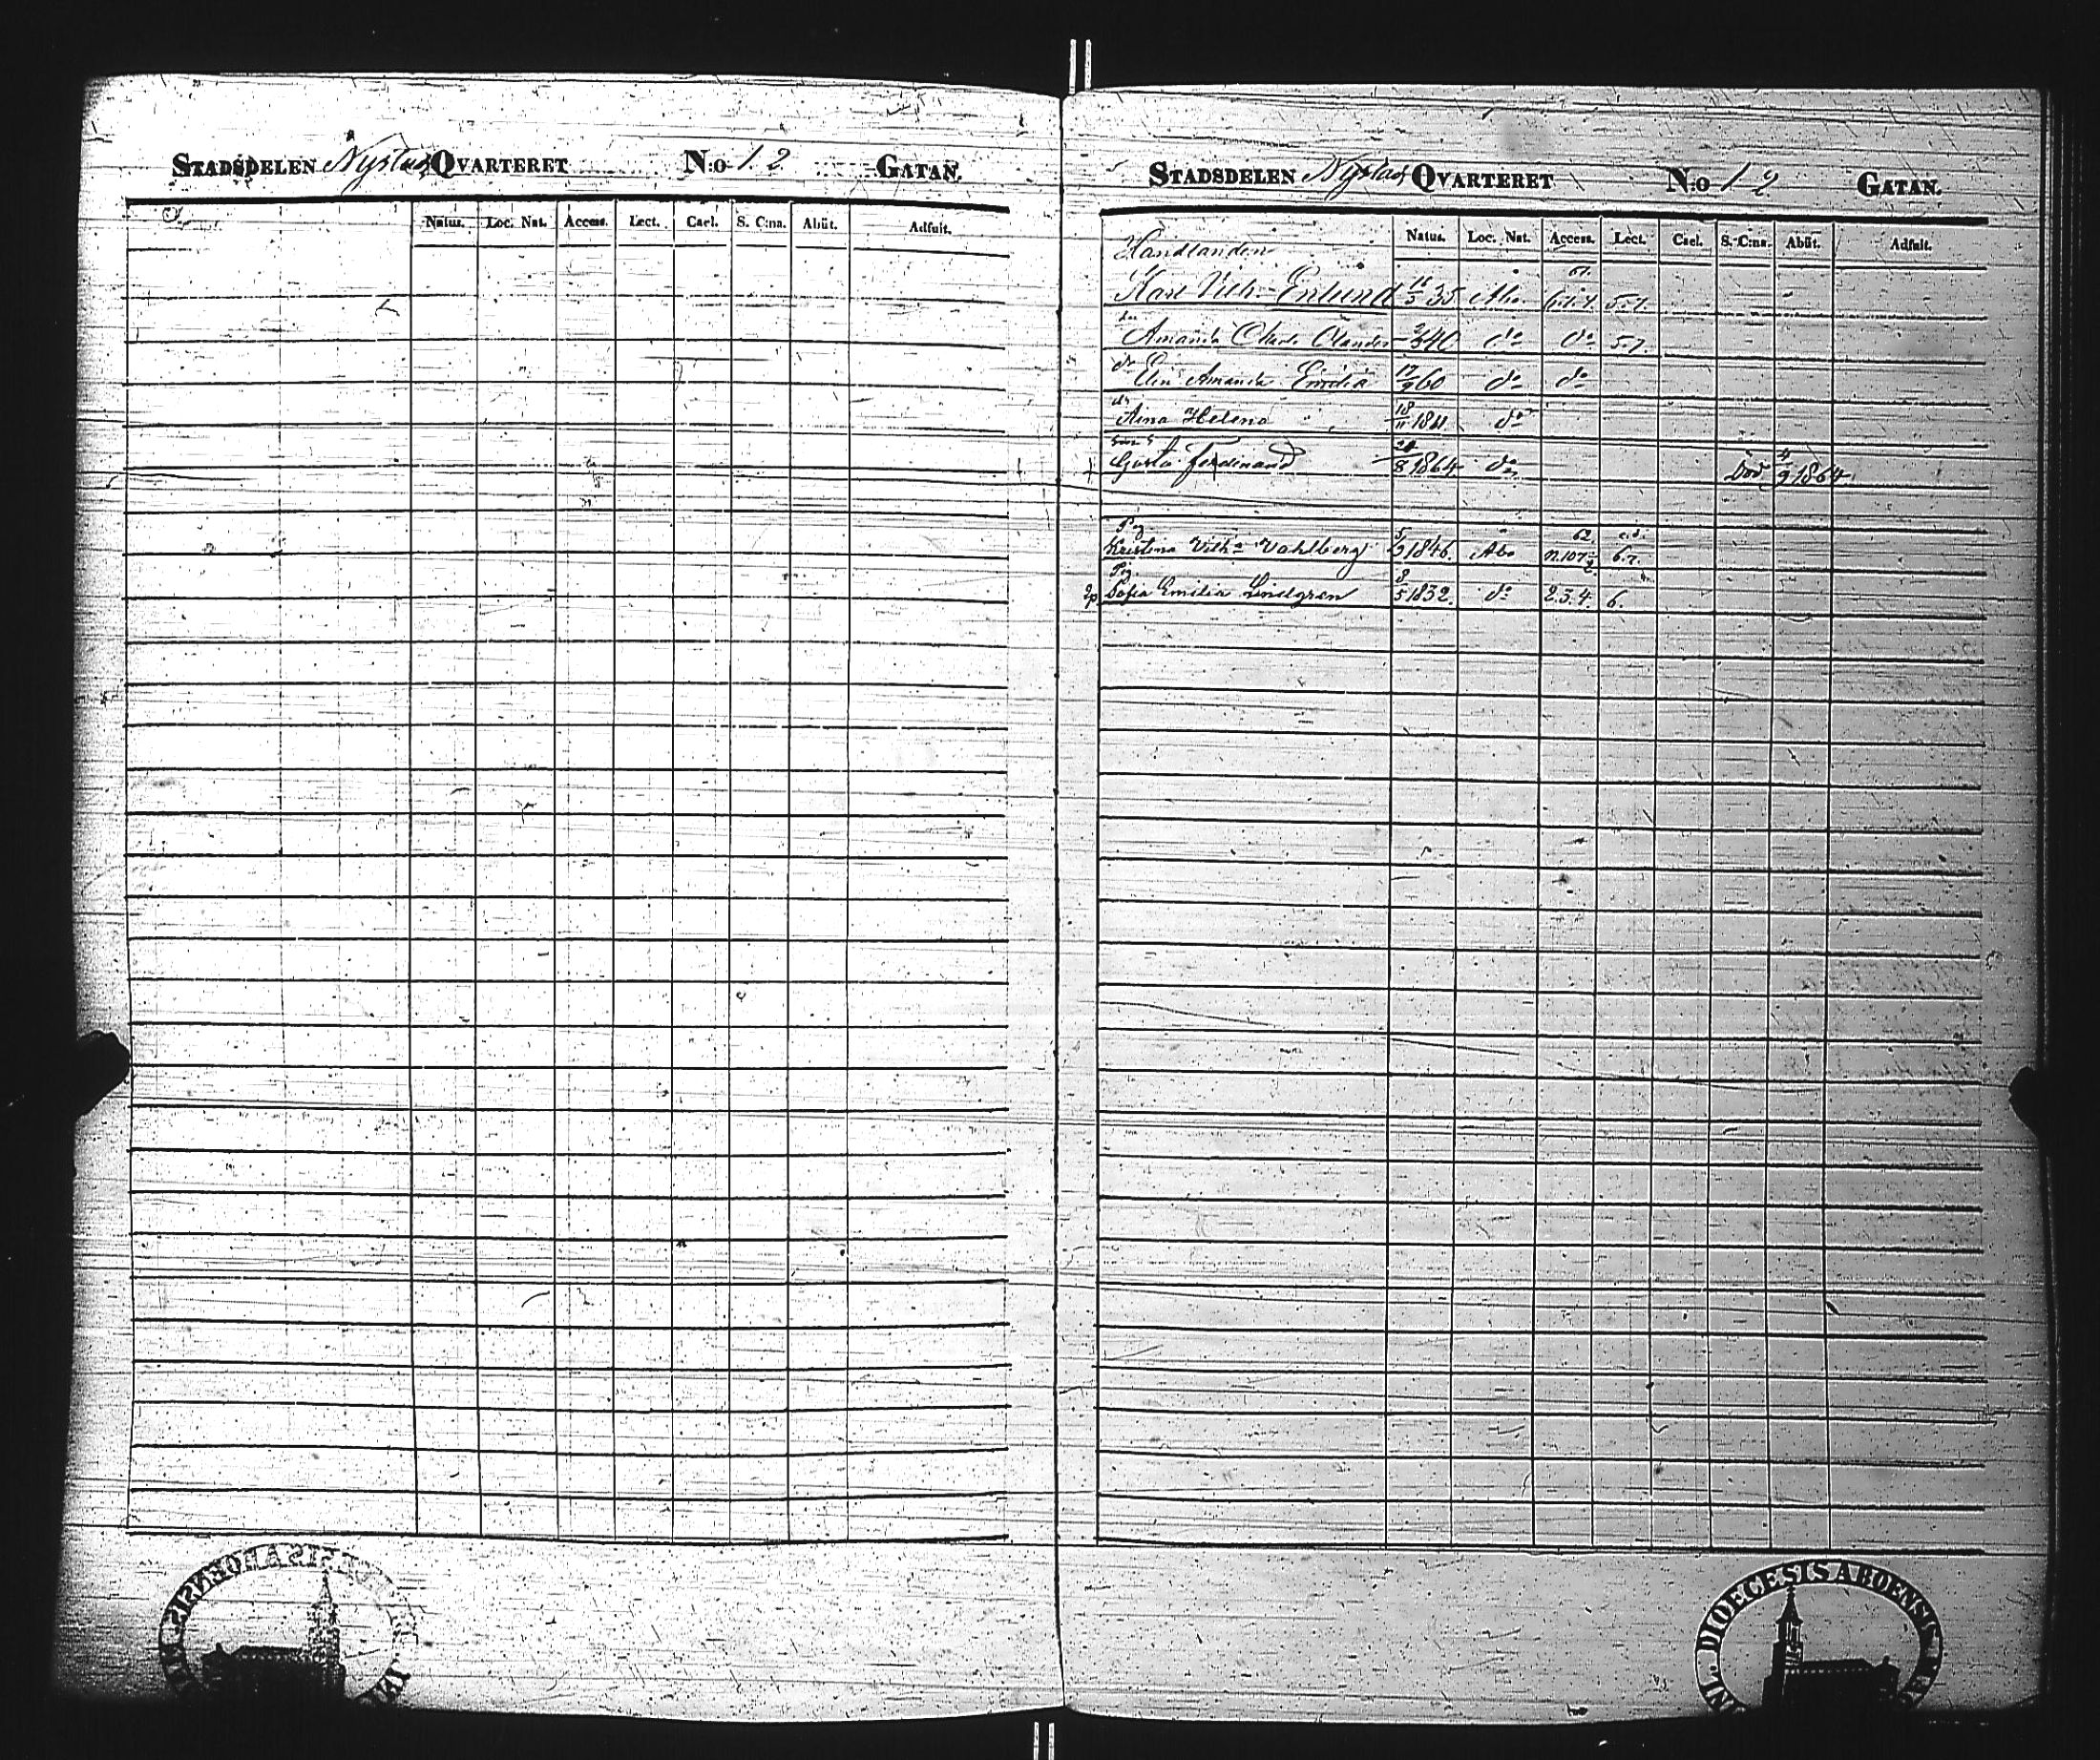 STADSDELEN Nystad QVARTERET N:o 1.2 GATAN.
Natus. Loc. Nat. Access. Lect. Cael. S. C:na. Abiit. Adfuit.
STADSDELEN Nystad QVARTERET N:o 1 2 GATAN.
Natus. Loc. Nat. Access. Lect. Cael. S. C:na Abiit. Adfuit.
Handlanden
Karl Vilh. Enlund 35 Åbo 5.7.
Amanda Olander 40 do do 5.7.
dr
Elin Amanda Emilia 17/9 60 do do
dr
Aina Helena 18/11 1861 do
son
Gösta Ferdinand 8 1864 do Död 4/9 1864
Pig 62
Kristina Vilh:a Vahlberg 5/9 1846. Åbo n.107 6.7.
Pig
Sofia Emilia Lindgren 8/5 1832. do 2.3.4. 6.
DIOECESIS ABOENSIS